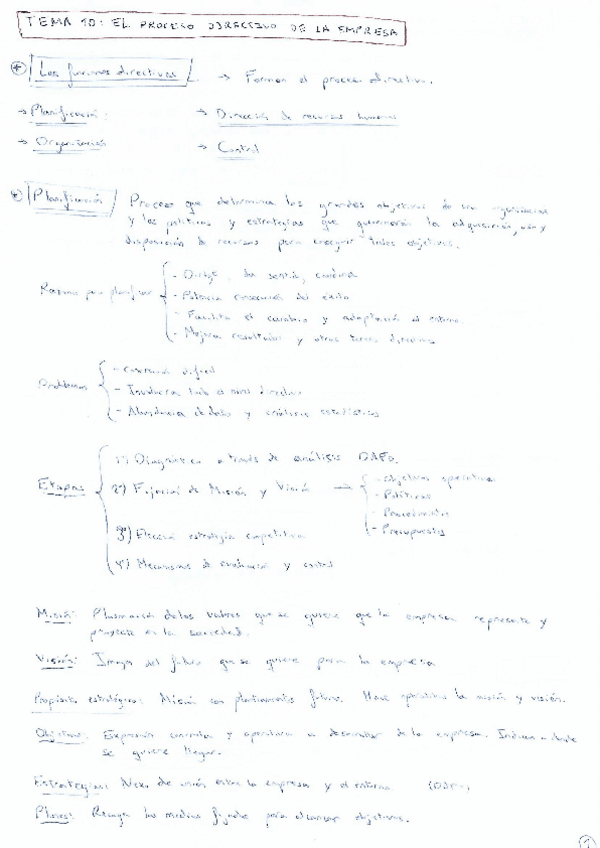 TEMA 10: EL PROCESO DIRECTIVO DE LA EMPRESA
Las funciones directivas → Forman el proceso directivo.
→ Planificación: → Dirección de recursos humanos
→ Organización → Control
Planificación Proceso que determina los grandes objetivos de una organización
y las políticas y estrategias que gobernarán la adquisición, uso y
disposición de recursos para conseguir tales objetivos.
Razones para planificar
- Dirige, da sentido,
- Potencia consecución del éxito
- Facilita el cambio y adaptación al entorno
- Mejora resultados y otras tareas directivas
Problemas
- difícil
- Involucrar todo a nivel directivo
- Abundancia de datos y análisis estadísticos
Etapas
1º) Diagnóstico a través de análisis DAFO.
2º) Fijación de Misión y Visión →
- Objetivos operativos
- Políticas
- Procedimientos
- Presupuestos
3º) Elección estrategia competitiva
4º) Mecanismos de evaluación y control
Misión: Plasmación de los valores que se quiere que la empresa represente y
proyecte en la sociedad.
Visión: Imagen del futuro que se quiere para la empresa
Propósito estratégico: Misión con planteamientos futuros. Hace operativa la misión y visión.
Objetivos: Expresión concreta y operativa a desarrollar de la empresa. Indican a donde
se quiere llegar.
Estrategias: Nexo de unión entre la empresa y el entorno
Planes: Recoge los medios fijados para alcanzar objetivos.
1